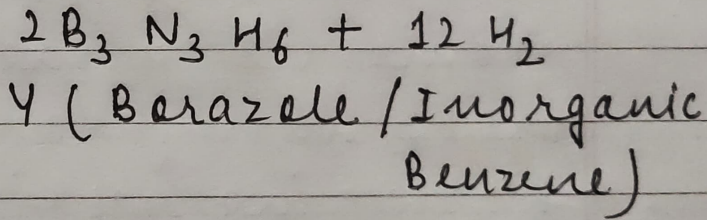 2 B₃ N₃ H₆ + 12 H₂
Y ( Borazole / Inorganic
Benzene)